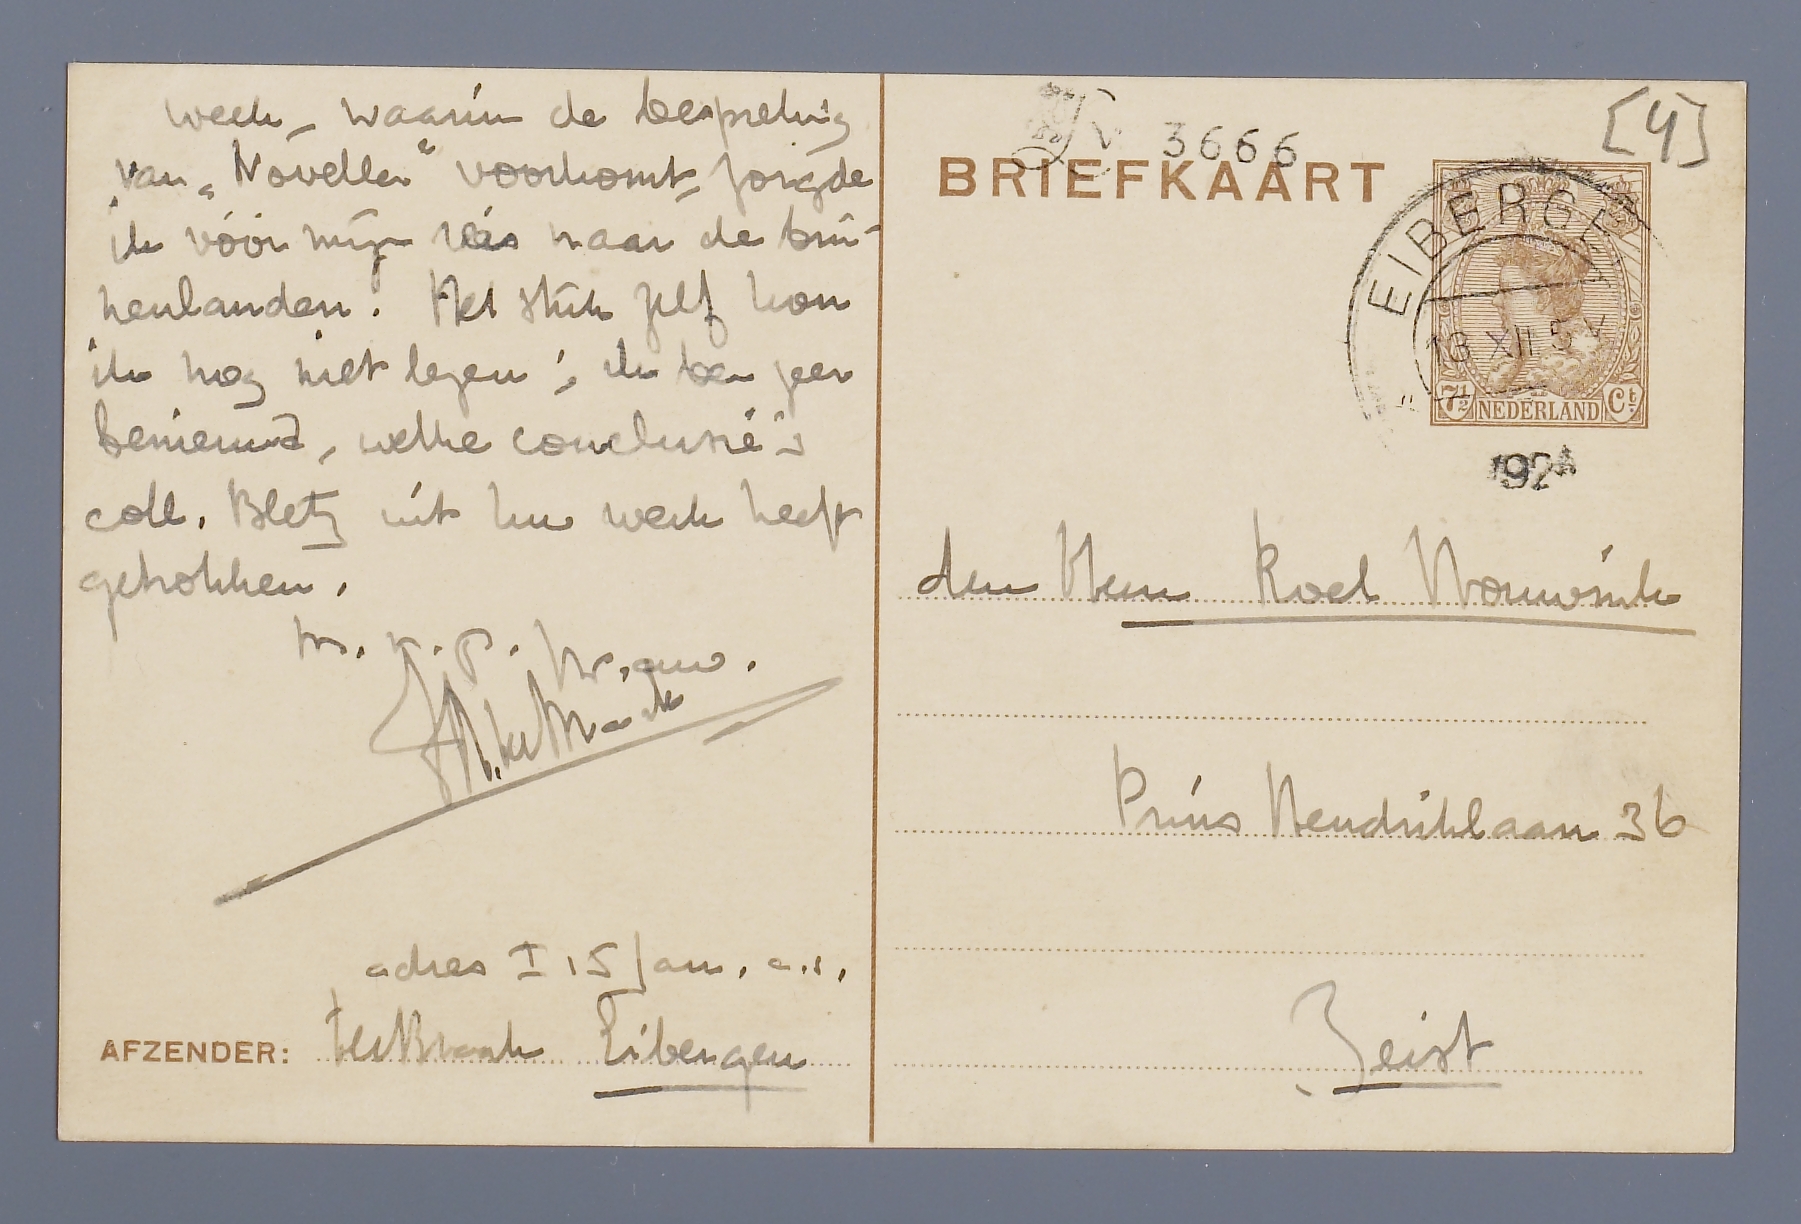 week, waarin de bespreking
van „Novellen" voorkomt, zorgde
ik vóór mijn reis naar de bin-
nenlanden. Het stuk zelf kon
ik nog niet lezen; ik ben zeer
benieuwd, welke conclusie's
coll. Bletz uit hun werk heeft
getrokken.
m. v. g. Hr. auw.
M. ter Braak
adres I 15 Jan. a.s.
AFZENDER: Ter Braak Eibergen
3666
[4]
BRIEFKAART
EIBERGE
13 XII 5 V
7½ NEDERLAND Ct.
1924
den Heer Roel Houwink
Prins Hendriklaan 36
Zeist